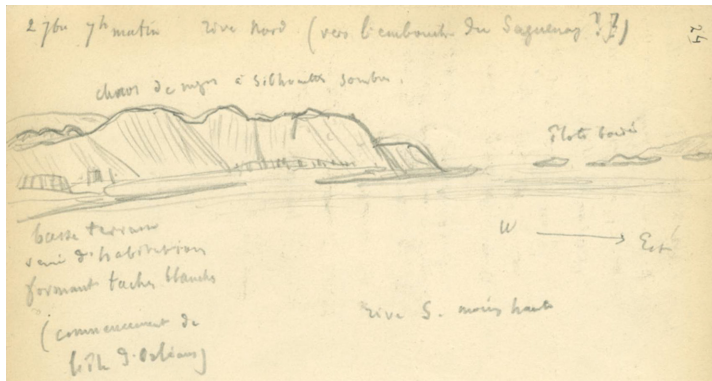 27 7bre 7h matin rive Nord (vers l'embouch. du Saguenay ??)
24
chaos de nuages à silhouette sombre.
îlots boisés
basse terrasse
semé d'habitations
formant taches blanches
(commencement de
l'île d'Orléans)
W → Est
rive S. moins haute